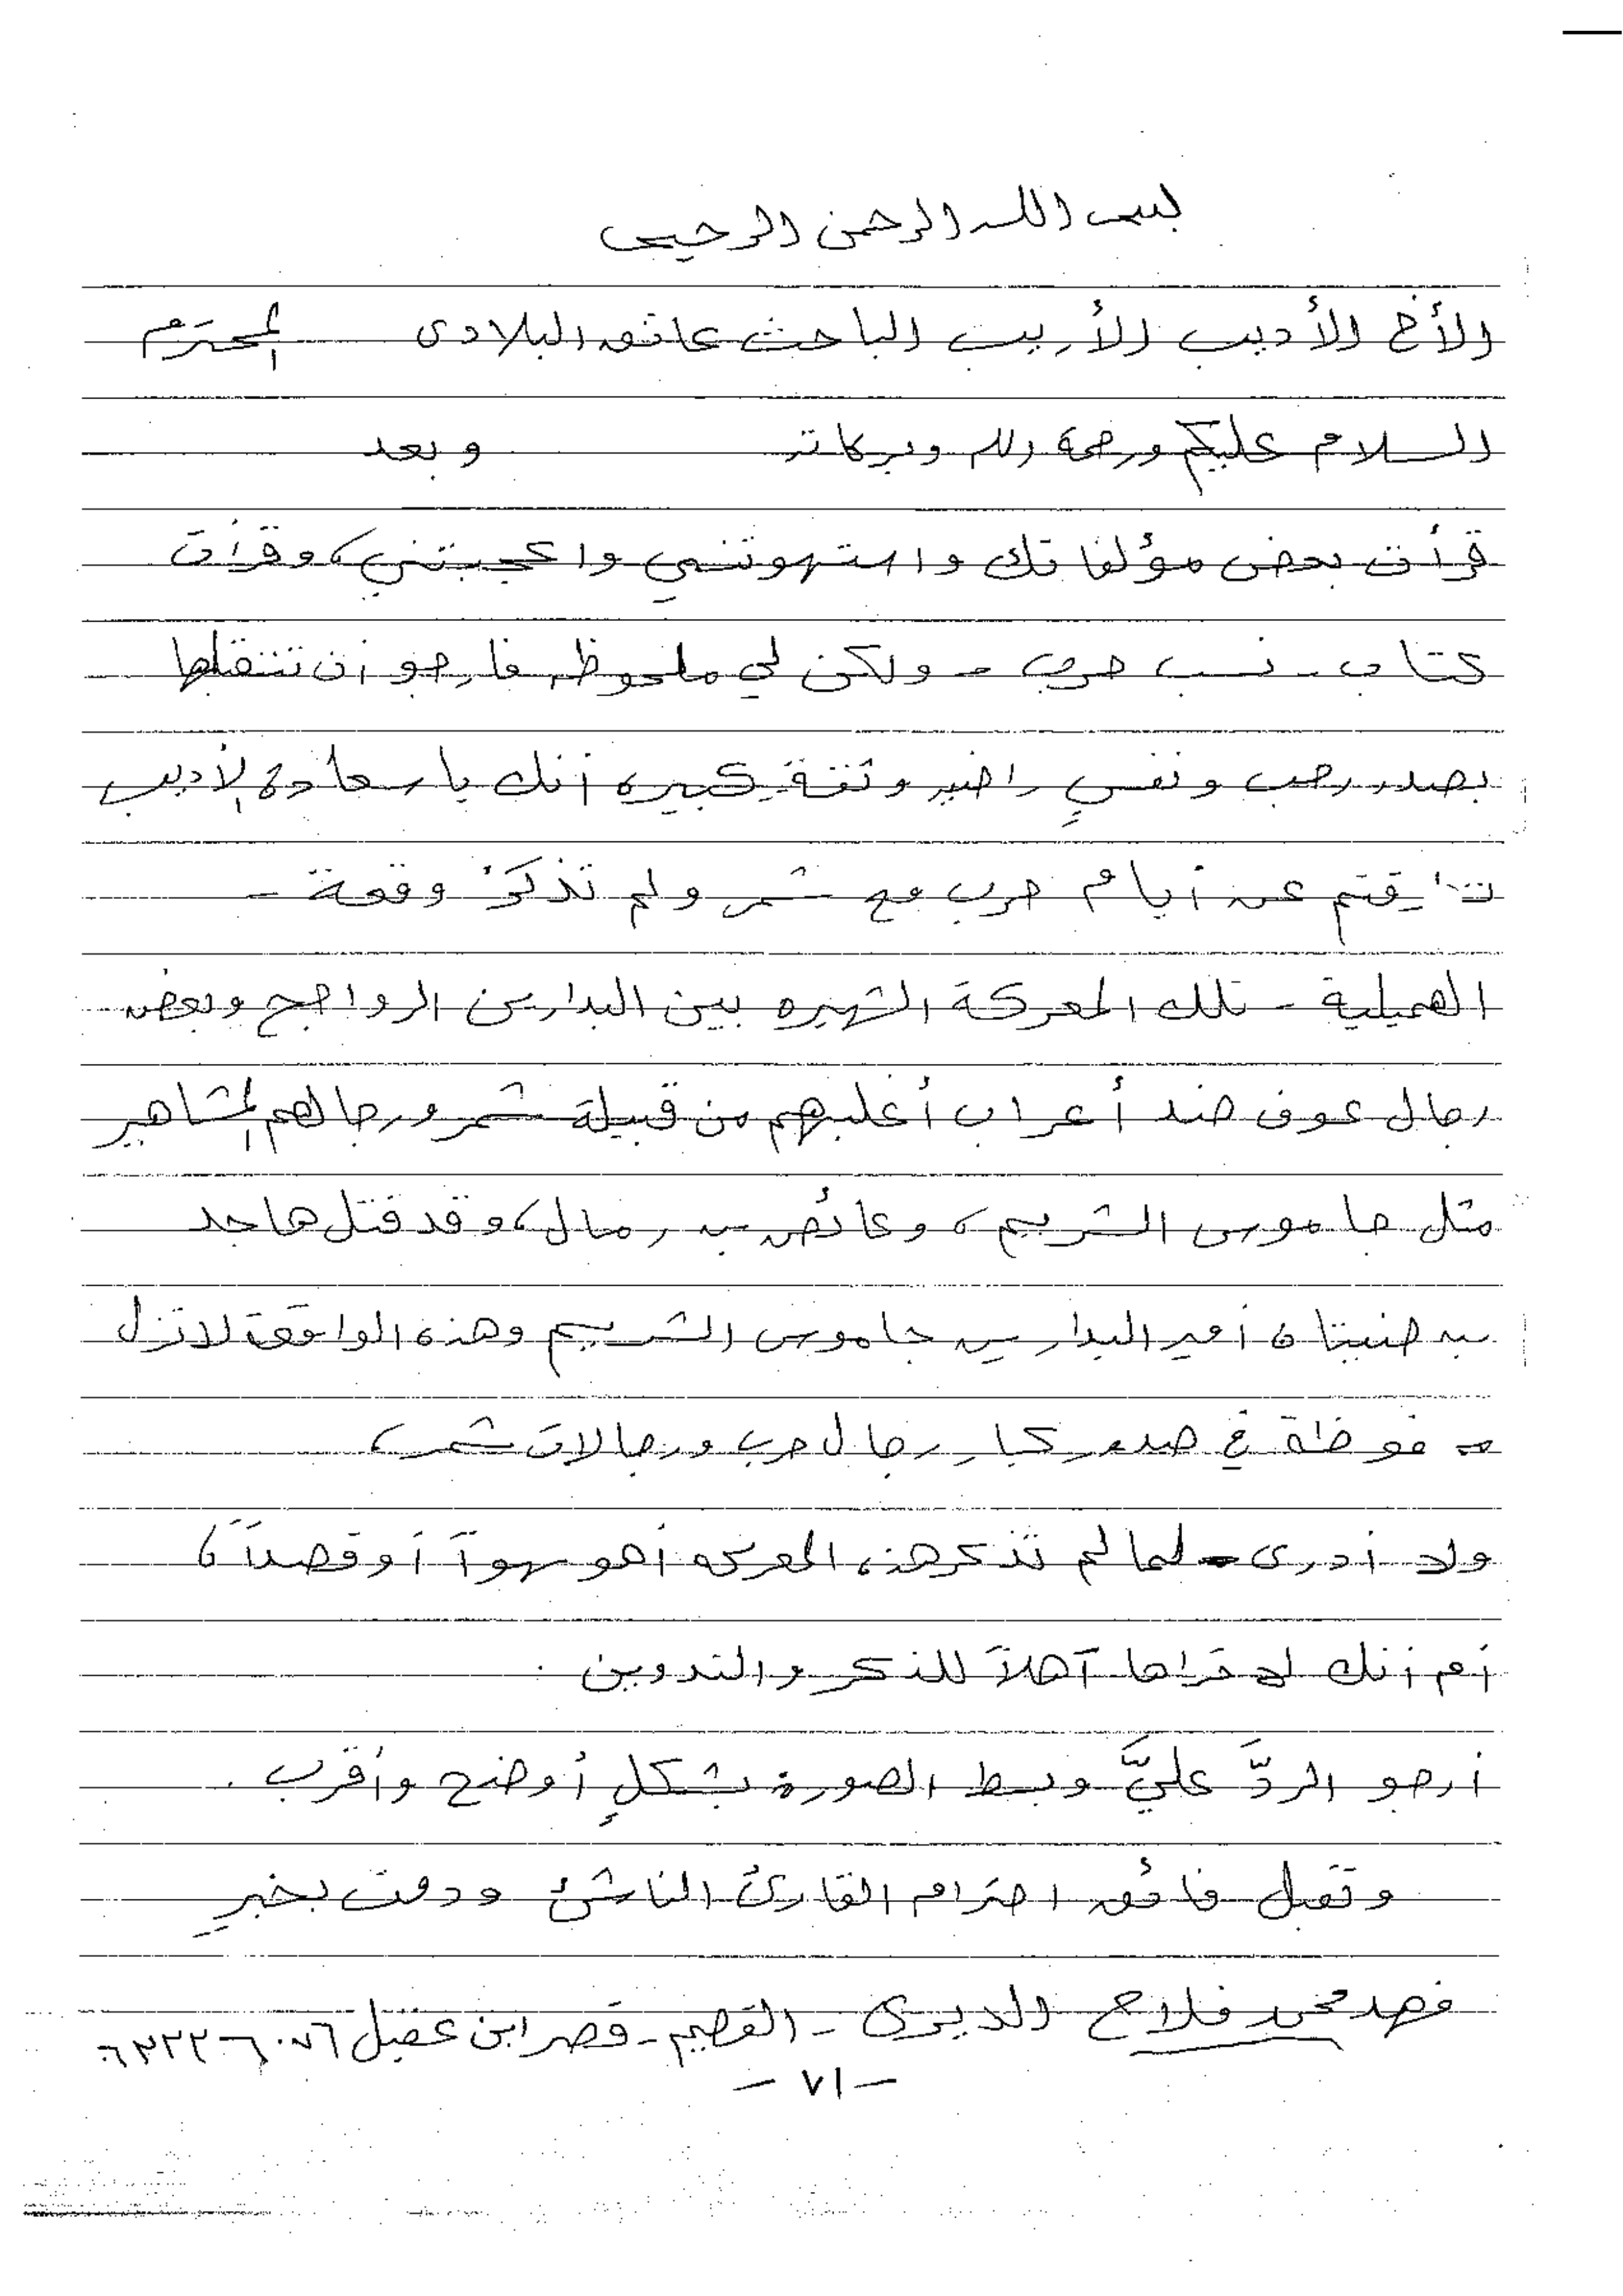 بسم الله الرحمن الرحيم
الأخ الأديب الأريب الباحث عاتق البلادى المحترم
السلام عليكم ورحمة الله وبركاته وبعد
قرأت بعض مؤلفاتك واستهوتني واعجبتني، وقرأت
كتاب - نسب حرب - ولكن لي ملحوظه فارجو أن تتقبلها
بصدر رحب ونفسٍ راضيه وثقةٍ كبيره أنك ياسعادة الأديب
عن أيام حرب مع شمر ولم تذكرْ وقعة -
الهميلية - تلك المعركة الشهيره بين البدارين الرواجح وبعض
رجال عوف ضد أعراب أغلبهم من قبيلة شمر ورجالهم المشاهير
مثل جاموس الشريم، وعائص بن رمال، وقد قتل هاجد
بن ضبيتان أمير البدارين جاموس الشريم وهذه الواقعة لاتزل
في صدور كبار رجال حرب ورجالات شمر،
ولا أدرى - لما لم تذكر هذه المعركه أهو سهواً أو قصداً،
أم أنك لا تراها آهلاً للذكر والتدوين .
أرجو الردَّ عليَّ وبسط الصورة بشكلٍ أوضح وأقرب .
وتقبل فائق احترام القارئ الناشئ ودمت بخيرٍ
فهد محمد فلاح الديرى - القصيم - قصر ابن عقيل
- ٧١ -